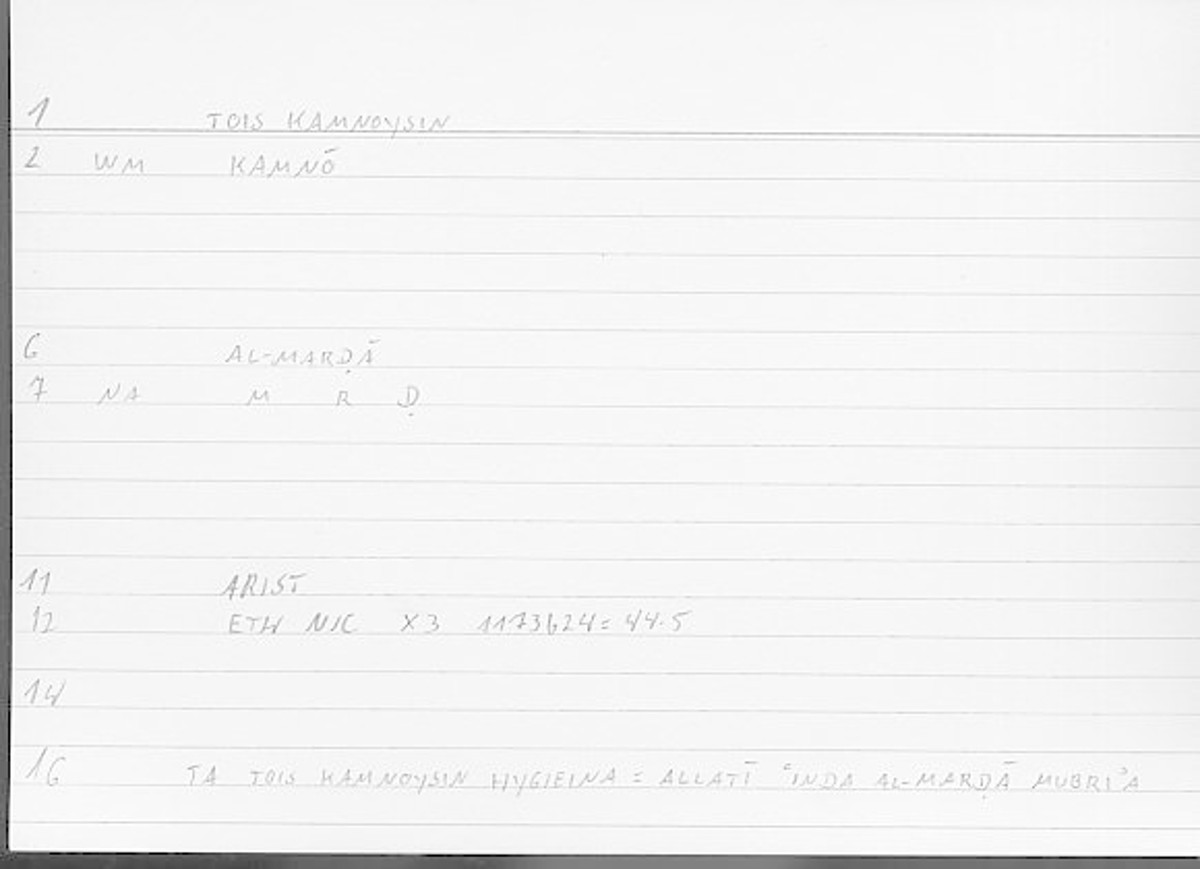 1 TOIS KAMNOYSIN
2 WM KAMNŌ
6 AL-MARḌĀ
7 NA M R Ḍ
11 ARIST
12 ETH NIC X3 1173b24 = 44.5
14
16 TA TOIS KAMNOYSIN HYGIEINA = ALLATĪ ʿINDA AL-MARḌĀ MUBRIʾA